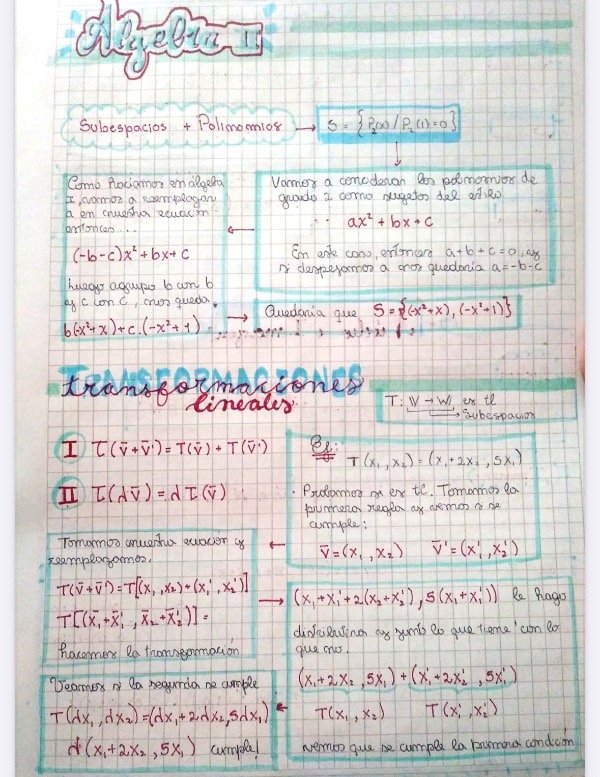 Algebra II
Subespacios + Polinomios → S = {P₂(x) / P₂(1) = 0}
Vamos a conciderar los polinomios de
grado 2 como sugetos del estilo
ax² + bx + c
En este caso, entonces a+b+c=0, y
si despejamos a nos quedaría a=-b-c
Como hacíamos en álgebra
I, vamos a reemplazar
a en nuestra ecuación
entonces...
(-b-c)x² + bx + c
Luego agrupo b con b
y c con c, nos queda,
b(-x²+x) + c.(-x²+1)
Quedaría que S = {(-x²+x), (-x²+1)}
TRANSFORMACIONES
transformaciones
lineales
T: V → W, es tl
Subespacios
I T(v̄+v̄') = T(v̄) + T(v̄')
II T(αv̄) = αT(v̄)
Ej:
T(x₁, x₂) = (x₁+2x₂, 5x₁)
Probamos si es tl. Tomamos la
primera regla y vemos si se
cumple:
v̄ = (x₁, x₂) v̄' = (x₁', x₂')
Tomamos nuestra ecuación y
reemplazamos.
T(v̄+v̄') = T[(x₁, x₂) + (x₁', x₂')]
T[(x₁+x₁', x₂+x₂')] =
hacemos la transformación
(x₁+x₁'+2(x₂+x₂'), 5(x₁+x₁')) le hago
distributiva y junto lo que tiene ' con lo
que no.
(x₁+2x₂, 5x₁) + (x₁'+2x₂', 5x₁')
T(x₁, x₂) T(x₁', x₂')
vemos que se cumple la primera condición
Veamos si la segunda se cumple
T(αx₁, αx₂) = (αx₁+2αx₂, 5αx₁)
α(x₁+2x₂, 5x₁) cumple!